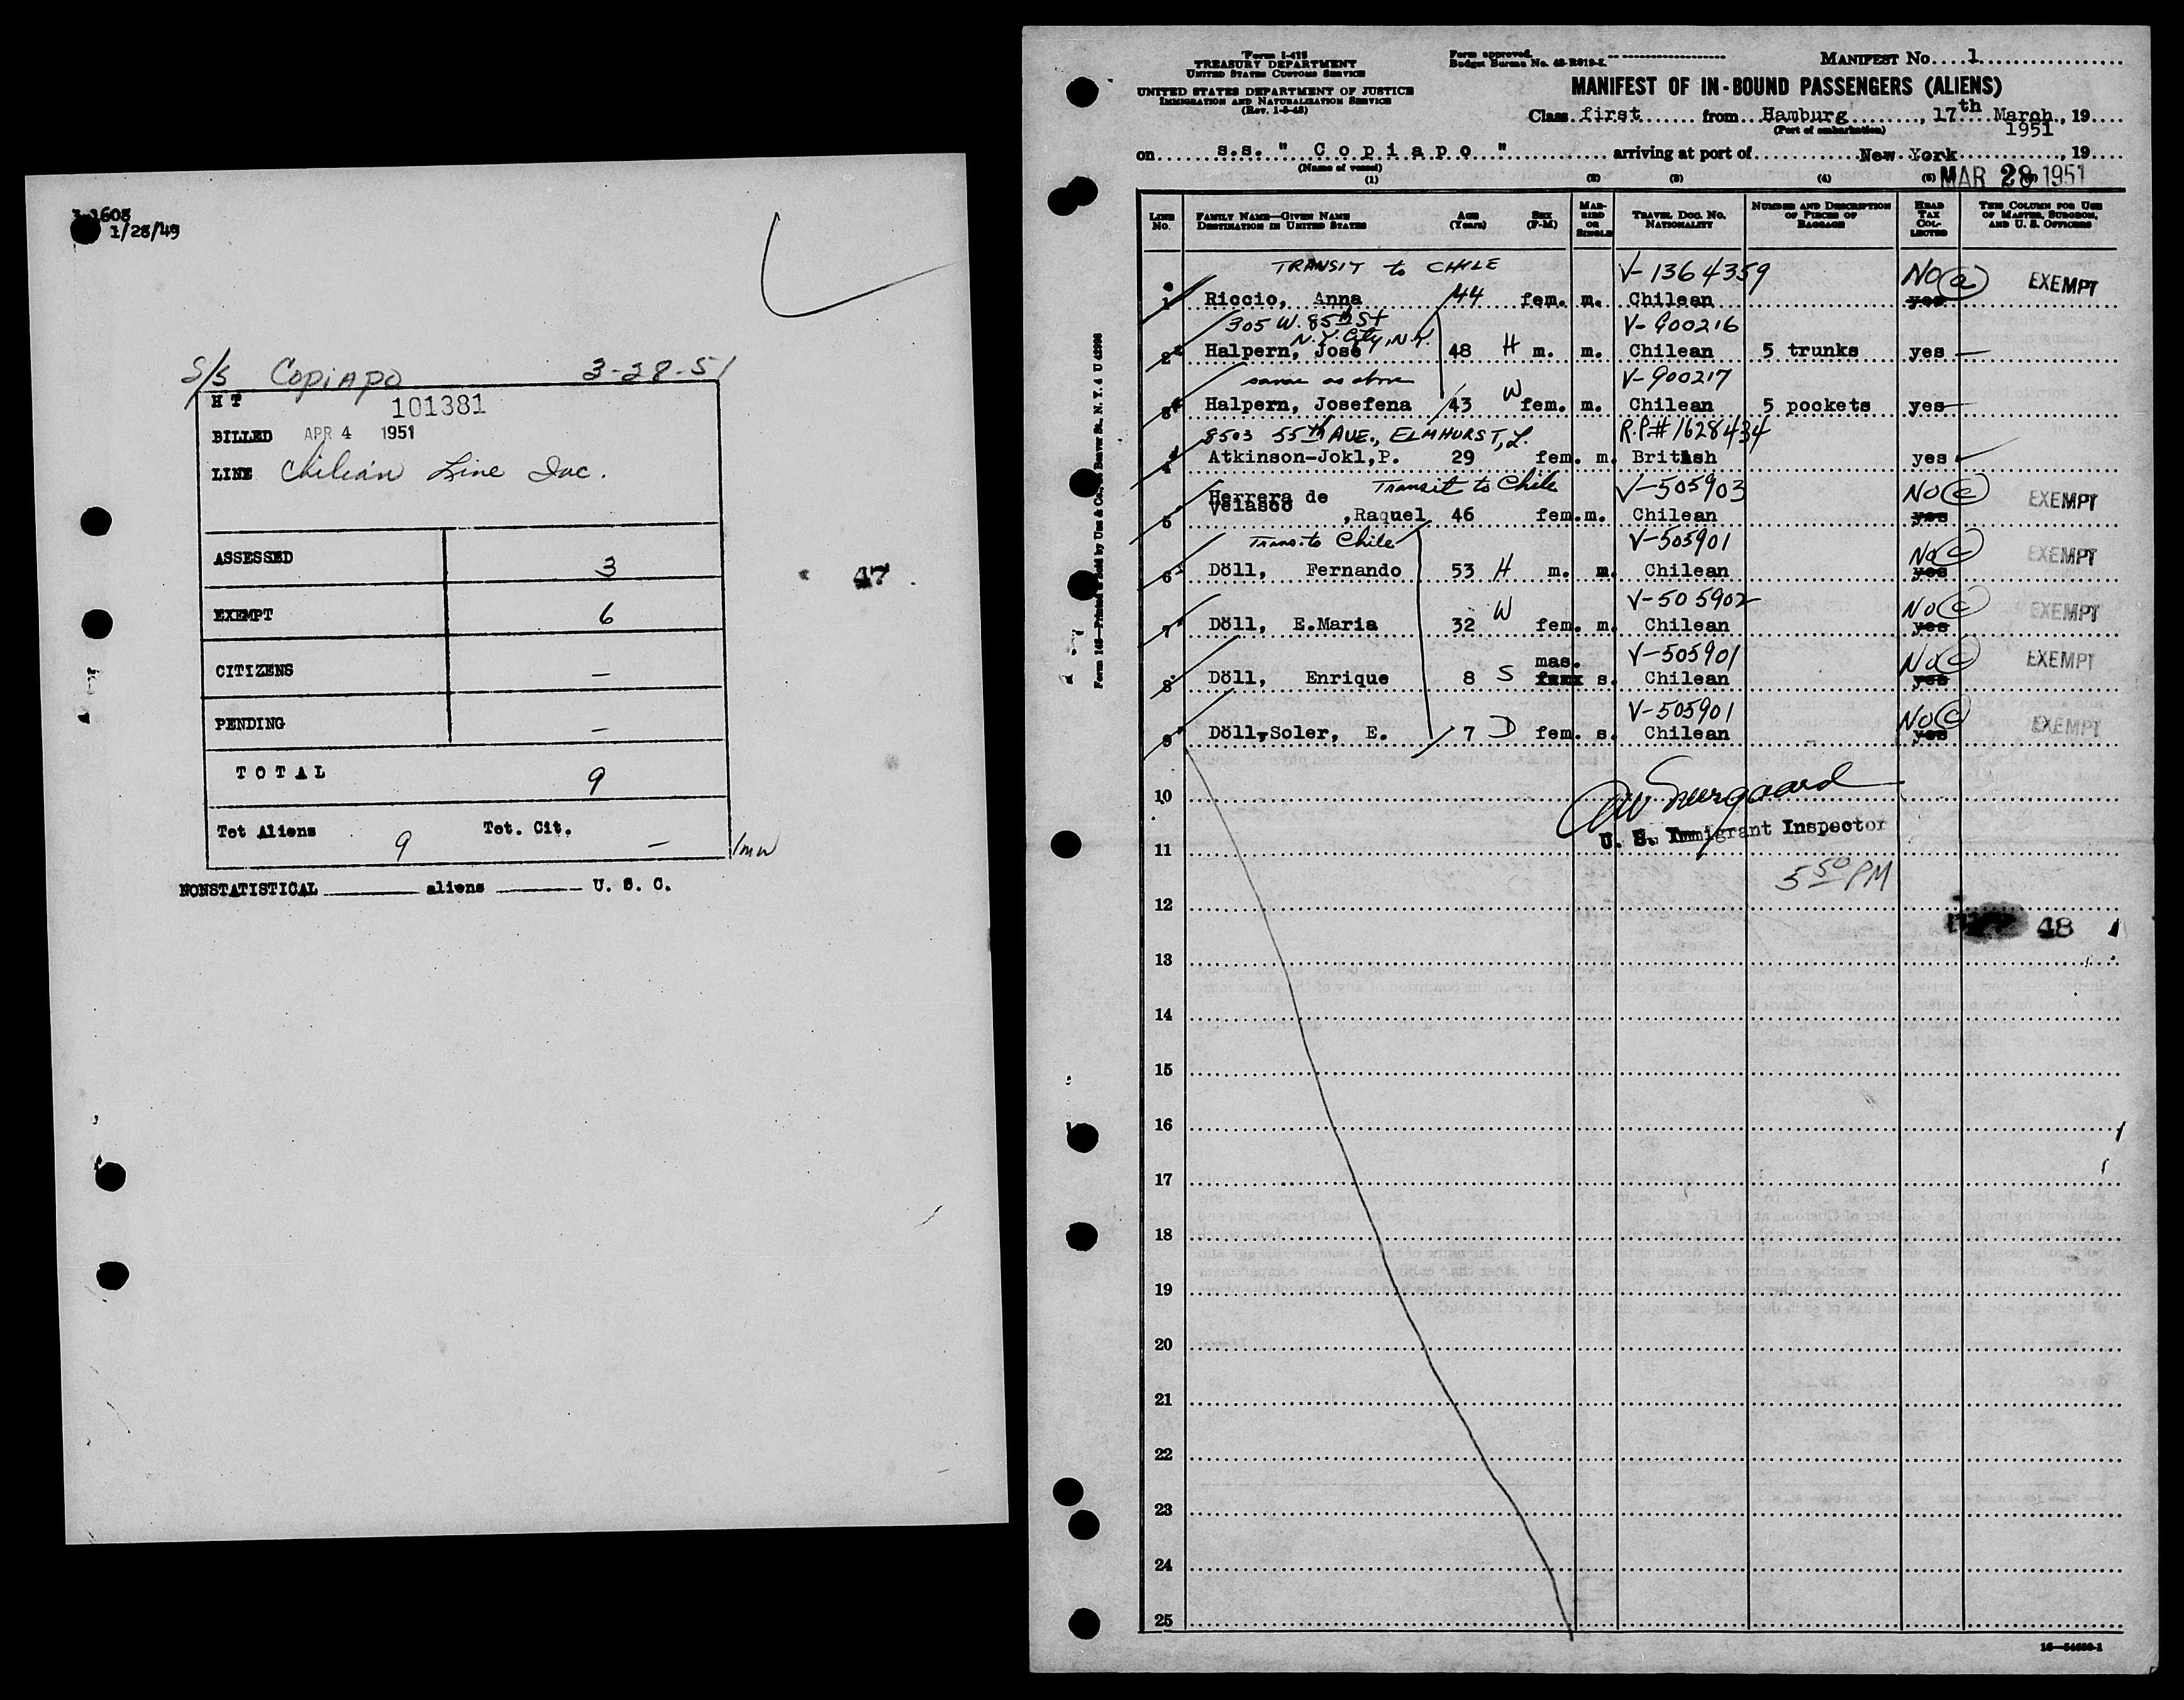 1/28/49
S/S Copiapo 3-28-51
HT 101381
BILLED APR 4 1951
LINE Chilean Line Inc.
ASSESSED 3
EXEMPT 6
CITIZENS —
PENDING —
TOTAL 9
Tot Aliens 9 Tot. Cit. —
NONSTATISTICAL aliens U. S. C.
47
Form I-415
TREASURY DEPARTMENT
UNITED STATES CUSTOMS SERVICE
UNITED STATES DEPARTMENT OF JUSTICE
IMMIGRATION AND NATURALIZATION SERVICE
(Rev. 1-5-48)
Form approved.
Budget Bureau No. 43-R019-2.
MANIFEST No. 1
MANIFEST OF IN-BOUND PASSENGERS (ALIENS)
Class first from Hamburg, 17th March, 19
(Port of embarkation) 1951
on s.s. " C o p i a p o " arriving at port of New York, 19
(Name of vessel) MAR 28 1951
(1) (2) (3) (4) (5)
LINE No. FAMILY NAME—GIVEN NAME DESTINATION IN UNITED STATES AGE (Years) SEX (F-M) MARRIED OR SINGLE TRAVEL DOC. NO. NATIONALITY NUMBER AND DESCRIPTION OF PIECES OF BAGGAGE HEAD TAX COLLECTED THIS COLUMN FOR USE OF MASTER, SURGEON, AND U. S. OFFICERS
TRANSIT to CHILE V-1364359 NO (a) EXEMPT
1 Riccio, Anna 44 fem. m. Chilean yes
305 W. 85th St
N.Y. City, N.Y. V-900216
2 Halpern, José 48 H m. m. Chilean 5 trunks yes
same as above V-900217
3 Halpern, Josefena 43 W fem. m. Chilean 5 pockets yes
8503 55th AVE., ELMHURST, L. R.P.# 1628434
4 Atkinson-Jokl, P. 29 fem. m. British yes
Herrera de Transit to Chile V-505903 NO (c) EXEMPT
5 Velasco, Raquel 46 fem. m. Chilean yes
Transito Chile V-505901 No (c) EXEMPT
6 Döll, Fernando 53 H m. m. Chilean yes
V-505902 NO (c) EXEMPT
7 Döll, E.Maria 32 W fem. m. Chilean yes
mas. V-505901 No (c) EXEMPT
8 Döll, Enrique 8 S s. Chilean yes
V-505901 No (c) EXEMPT
9 Döll, Soler, E. 7 D fem. s. Chilean yes
10
U. S. Immigrant Inspector
11
5 50 PM
12
48
13
14
15
16
17
18
19
20
21
22
23
24
25